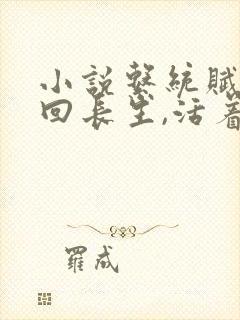 小說繫統賦
回長生,活着
羅成